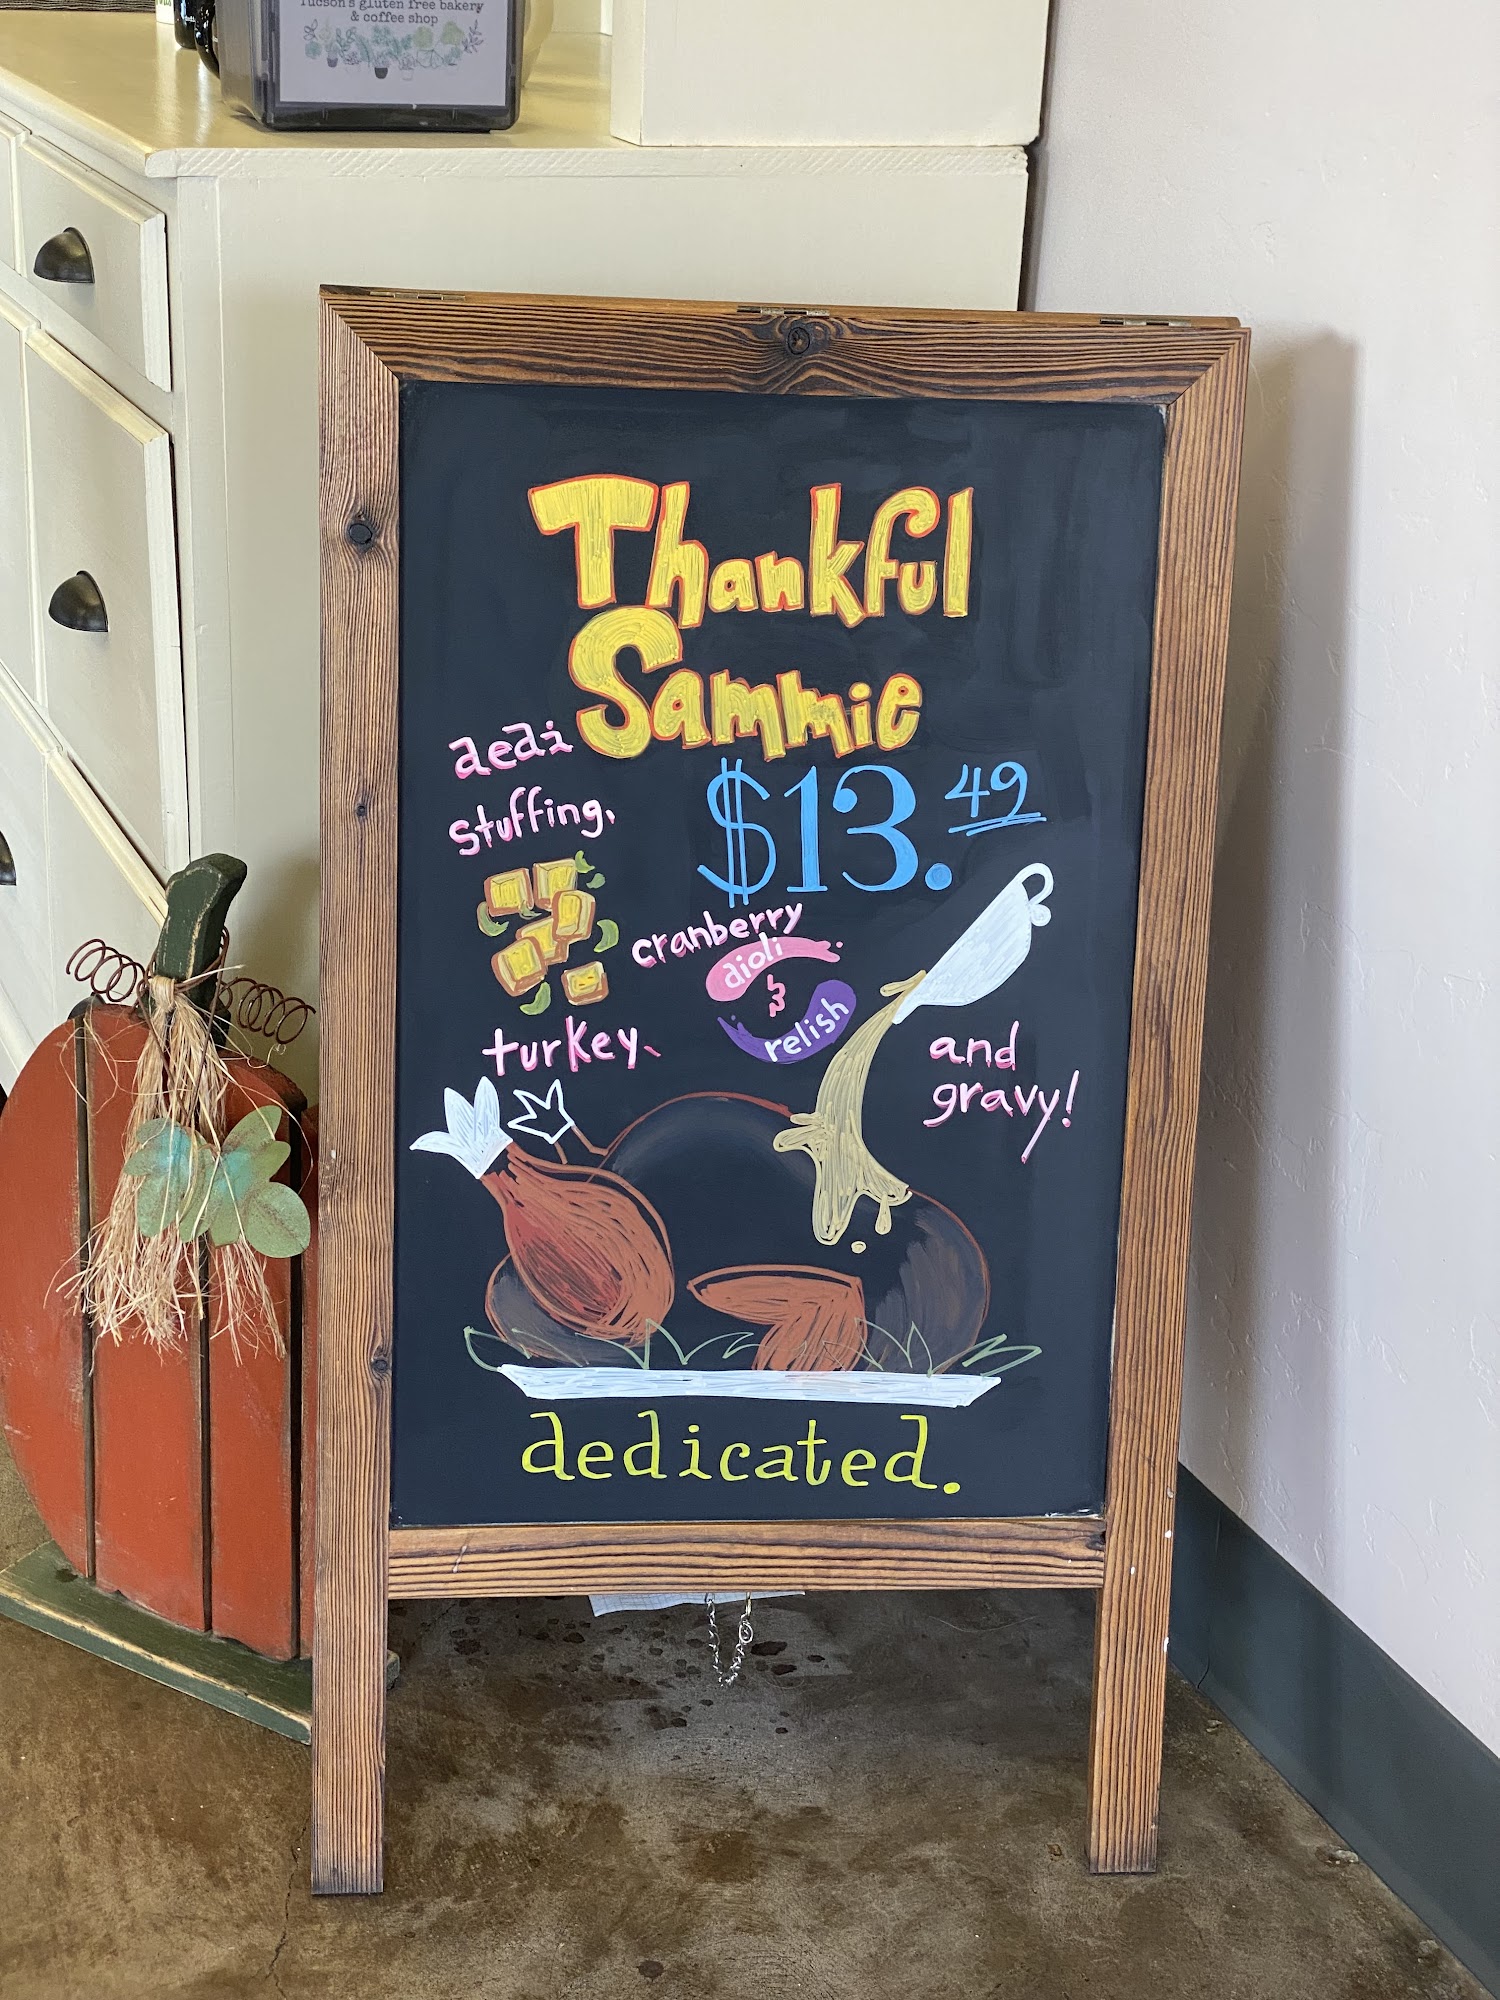 Tucson's gluten free bakery
& coffee shop
Thankful
Sammie
$13.49
dedi
stuffing,
cranberry
aioli
&
relish
turkey,
and
gravy!
dedicated.